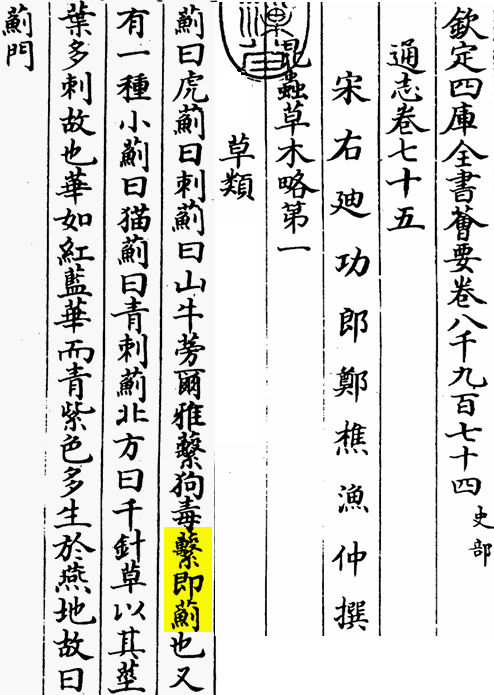 欽定四庫全書薈要卷八千九百七十四 史部
通志卷七十五
宋右廸功郎鄭樵漁仲撰
昆蟲草木略第一
草類
薊曰虎薊曰刺薊曰山牛蒡爾雅蘻狗毒蘻即薊也又
有一種小薊曰猫薊曰青刺薊北方曰千針草以其莖
葉多刺故也華如紅藍華而青紫色多生於燕地故曰
薊門